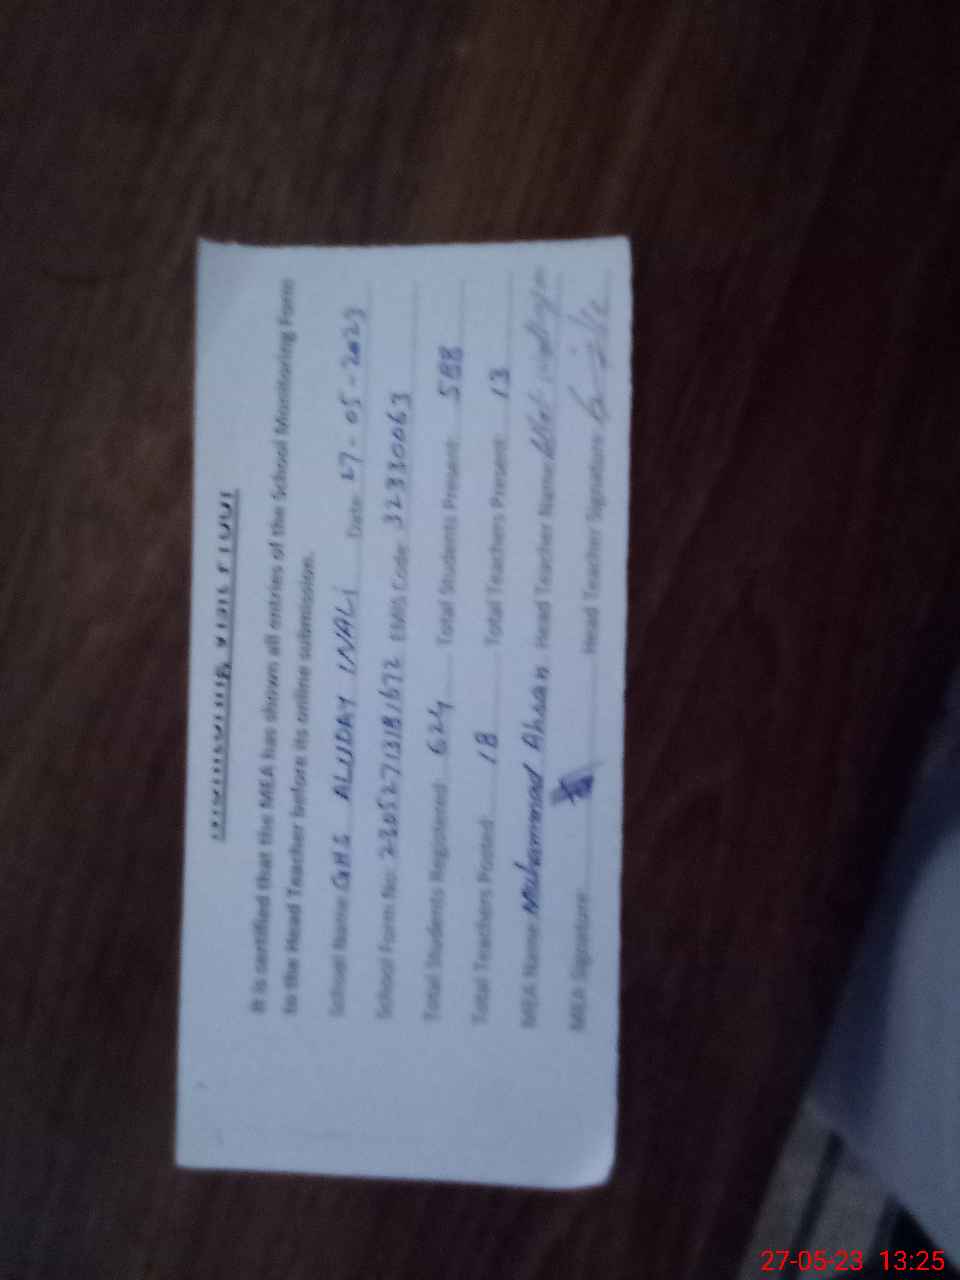 It is certified that the MEA has shown all entries of the School Monitoring Form
to the Head Teacher before its online submission.
School Name GHS ALUDAY WALI Date 27-05-2023
School Form No: 23052713181672 EMIS Code 32330063
Total Students Registered: 624 Total Students Present: 588
Total Teachers Posted: 18 Total Teachers Present: 13
MEA Name Muhammad Ahsan Head Teacher Name
MEA Signature Head Teacher Signature
27-05-23 13:25